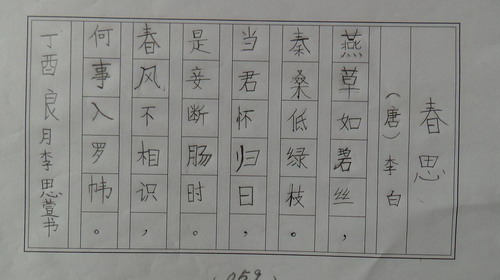 春思
（唐）李白
燕草如碧丝，
秦桑低绿枝。
当君怀归日，
是妾断肠时。
春风不相识，
何事入罗帏。
丁酉良月李思萱书